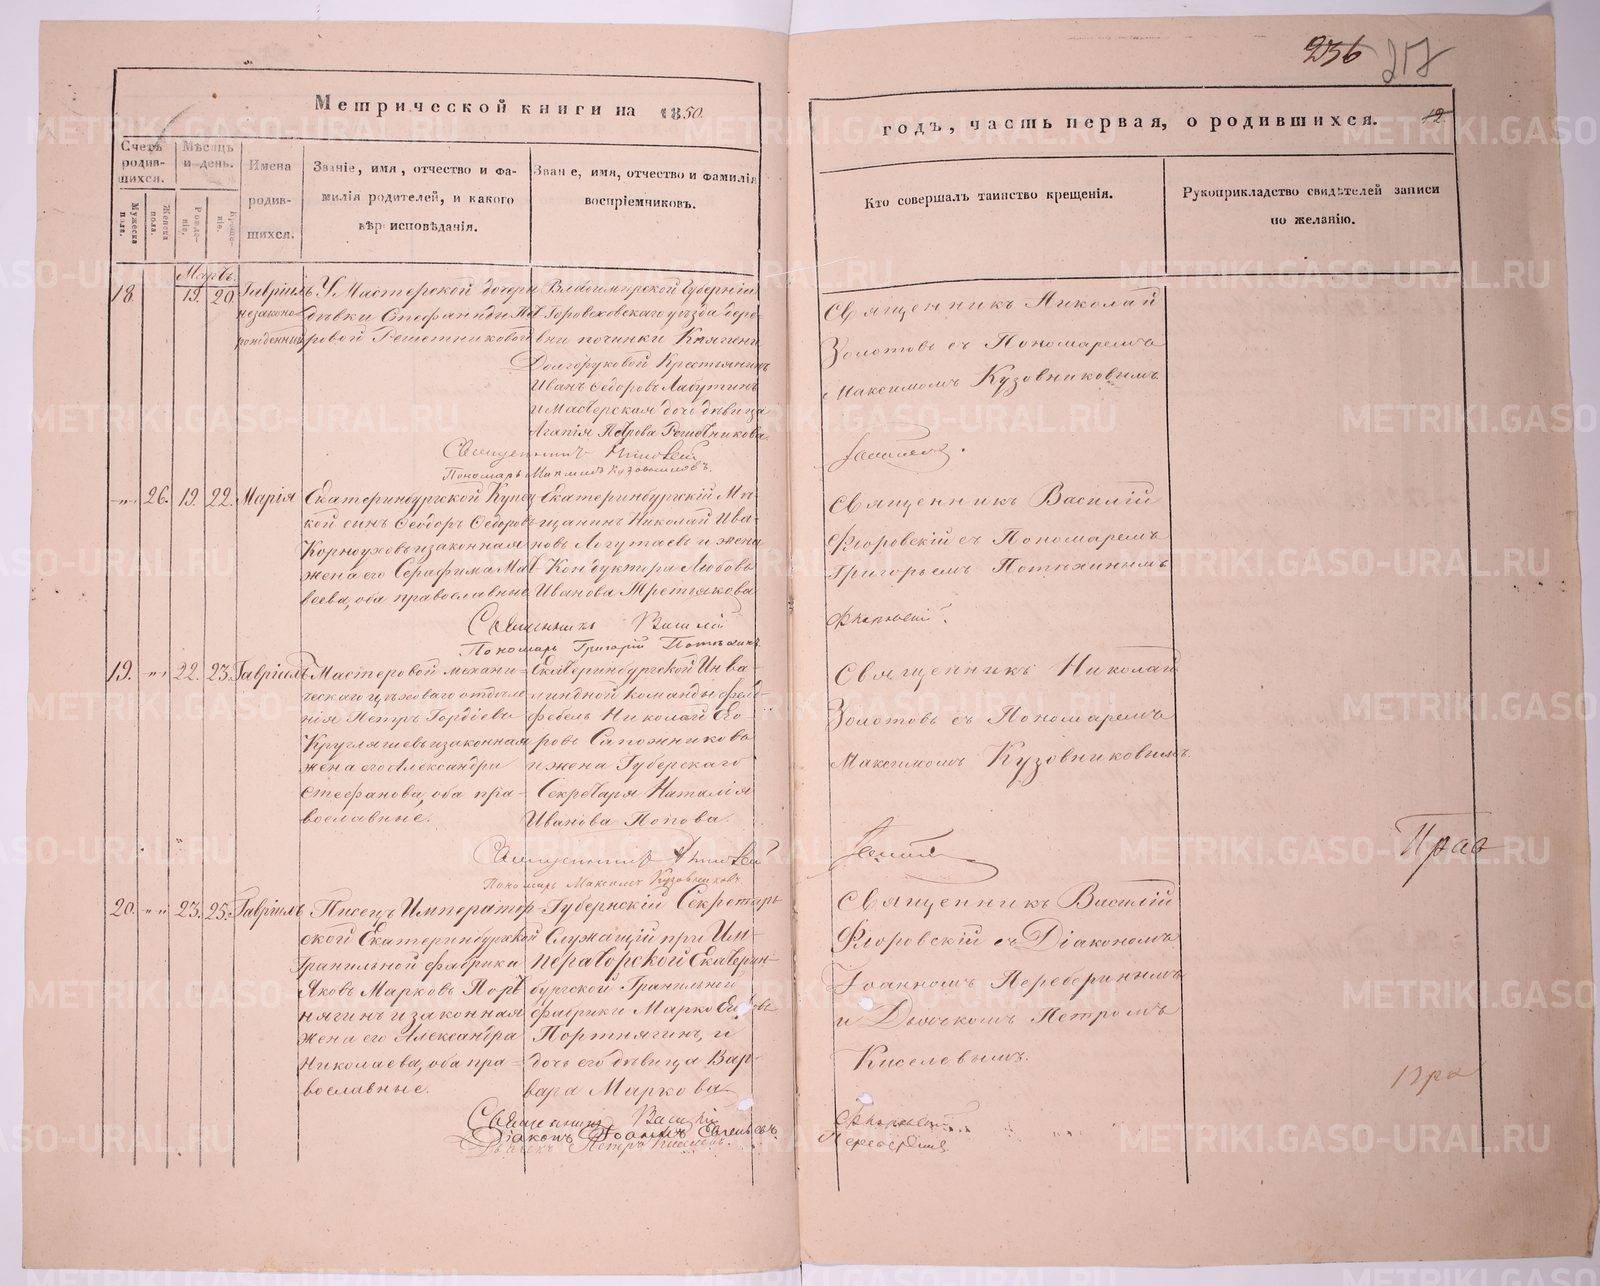 236 217
Метрической книги на 1850.
годъ, часть первая, о родившихся. 12.
Счетъ родив-шихся.
Мужеска пола.
Женска пола.
Мѣсяцъ и день.
Рожде-нія.
Креще-нія.
Имена родив-шихся.
Званіе, имя, отчество и фа-
милія родителей, и какого
вѣроисповѣданія.
Званіе, имя, отчество и фамилія
воспріемниковъ.
Кто совершалъ таинство крещенія.
Рукоприкладство свидѣтелей записи
по желанію.
Мартъ.
18. 19. 20.
Гавріилъ
незаконно-
рожденный
У Мастерской дочери
дѣвки Стефаниды Пет
ровой Решетниковой
Владимирской Губерніи
Гороховскаго уѣзда дере-
вни починки Княгини
Долгоруковой Крестьянинъ
Иванъ Ѳедоровъ Лабутинъ
и Мастерская дочь дѣвица
Агапія Петрова Решетникова.
Священникъ Николай
Пономарь Максимъ Кузовниковъ.
Священникъ Николай
Золотовъ съ Пономаремъ
Максимомъ Кузовниковымъ.
-"- 26. 19. 22. Марія
Екатеринбургской Купец
кой сынъ Ѳеодоръ Ѳедоровъ
Корноуховъ и законная
жена его Серафима Мат
веева, оба православные
Екатеринбургскій Мѣ-
щанинъ Николай Ива-
новъ Логутаевъ и жена
Кондуктора Любовь
Иванова Третьякова
Священникъ Василій
Пономарь Григорій Потѣхинъ
Священникъ Василій
Флоровскій съ Пономаремъ
Григорьемъ Потѣхинымъ
Флоровскій.
19. -"- 22. 23. Гавріилъ
Мастеровой механи-
ческаго цѣховаго отдѣле
нія Петръ Гордѣевъ
Кругляшевъ и законная
жена его Александра
Стефанова, оба пра-
вославные.
Екатеринбургской Инва-
лидной команды фель-
фебель Николай Его
ровъ Сапожниковъ
и жена Губерскаго
Секретаря Наталія
Иванова Попова.
Священникъ Николай
Пономарь Максимъ Кузовниковъ
Священникъ Николай
Золотовъ съ Пономаремъ
Максимомъ Кузовниковымъ.
Прав
20. -"- 23. 25. Гавріилъ
Писецъ Император
ской Екатеринбургской
Гранильной фабрики
Яковъ Марковъ Порт
нягинъ и законная
жена его Александра
Николаева, оба пра-
вославные.
Губернскій Секретарь
Служащій при Им-
ператорской Екатерин-
бургской Гранильной
фабрики Марко
Портнягинъ, и
дочь его дѣвица Вар-
вара Маркова
Священникъ Василій
Діаконъ Іоаннъ
Дьячекъ Петръ Киселевъ.
Священникъ Василій
Флоровскій съ Діакономъ
Іоанномъ Переберинымъ
и Дьячкомъ Петромъ
Киселевымъ.